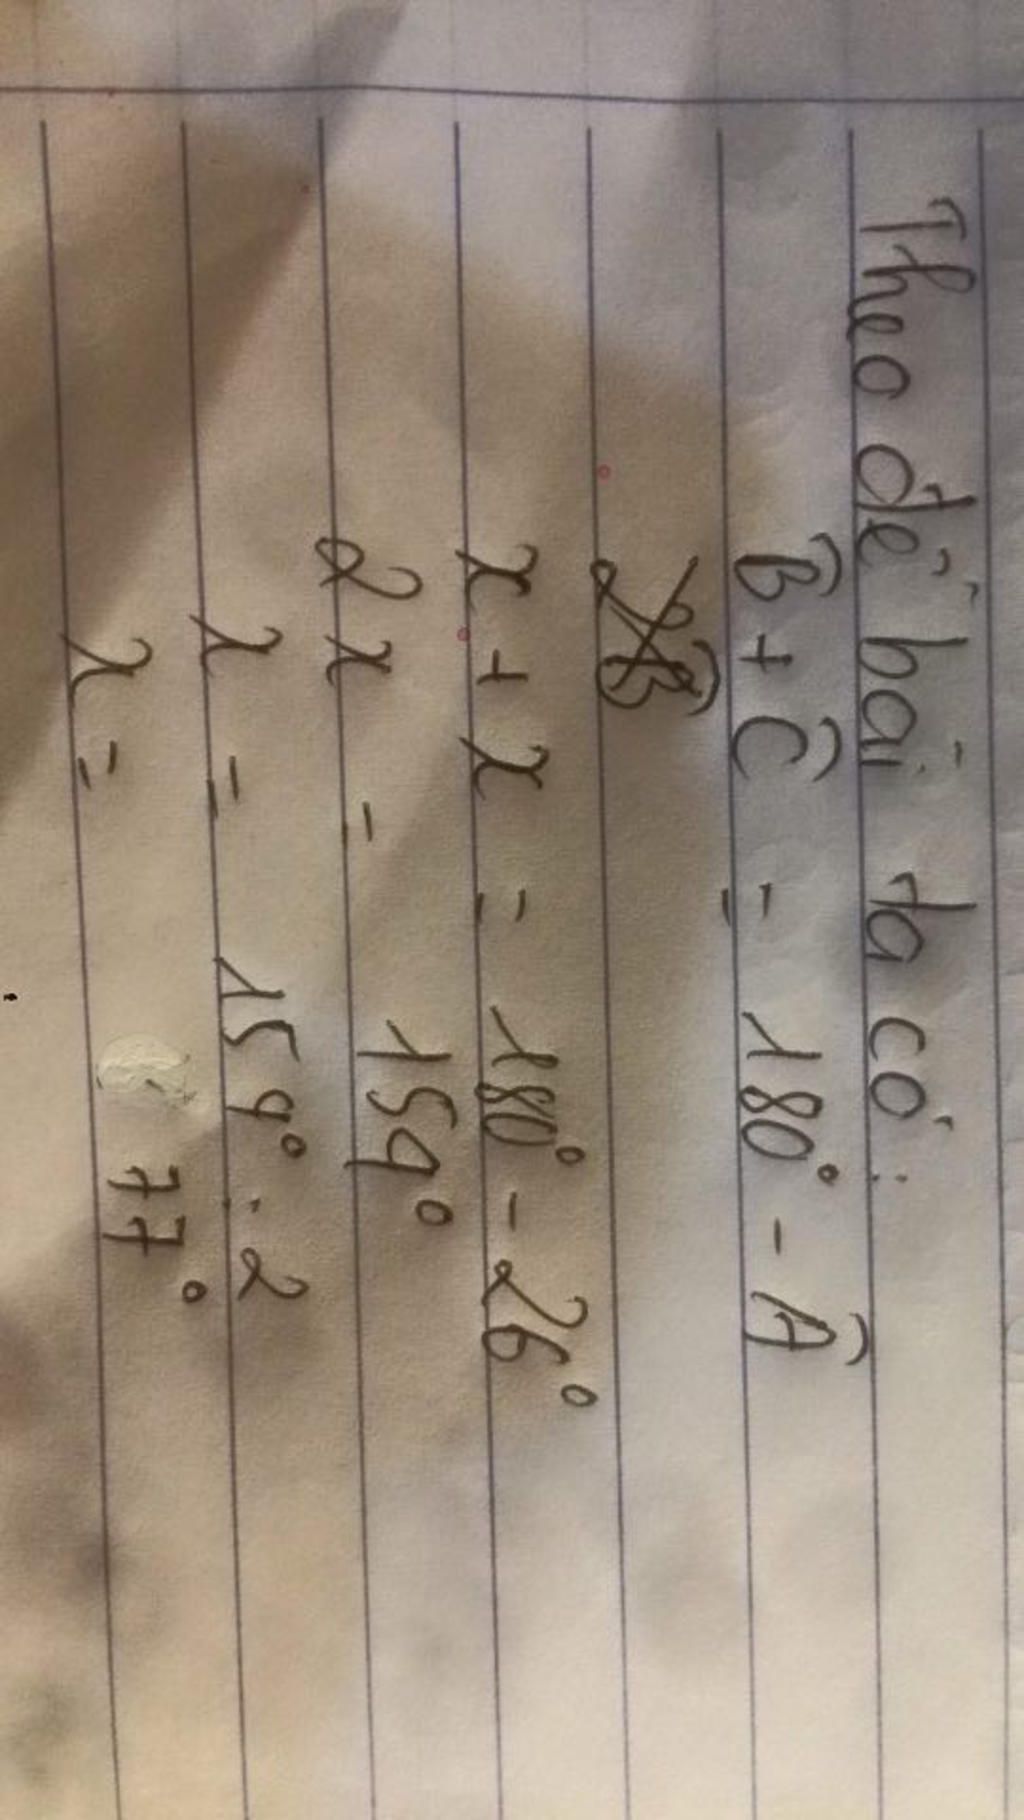 Theo đề bài ta có:
B̂ + Ĉ = 180° - Â
x + x = 180° - 26°
2x = 154°
x = 154° : 2
x = 77°